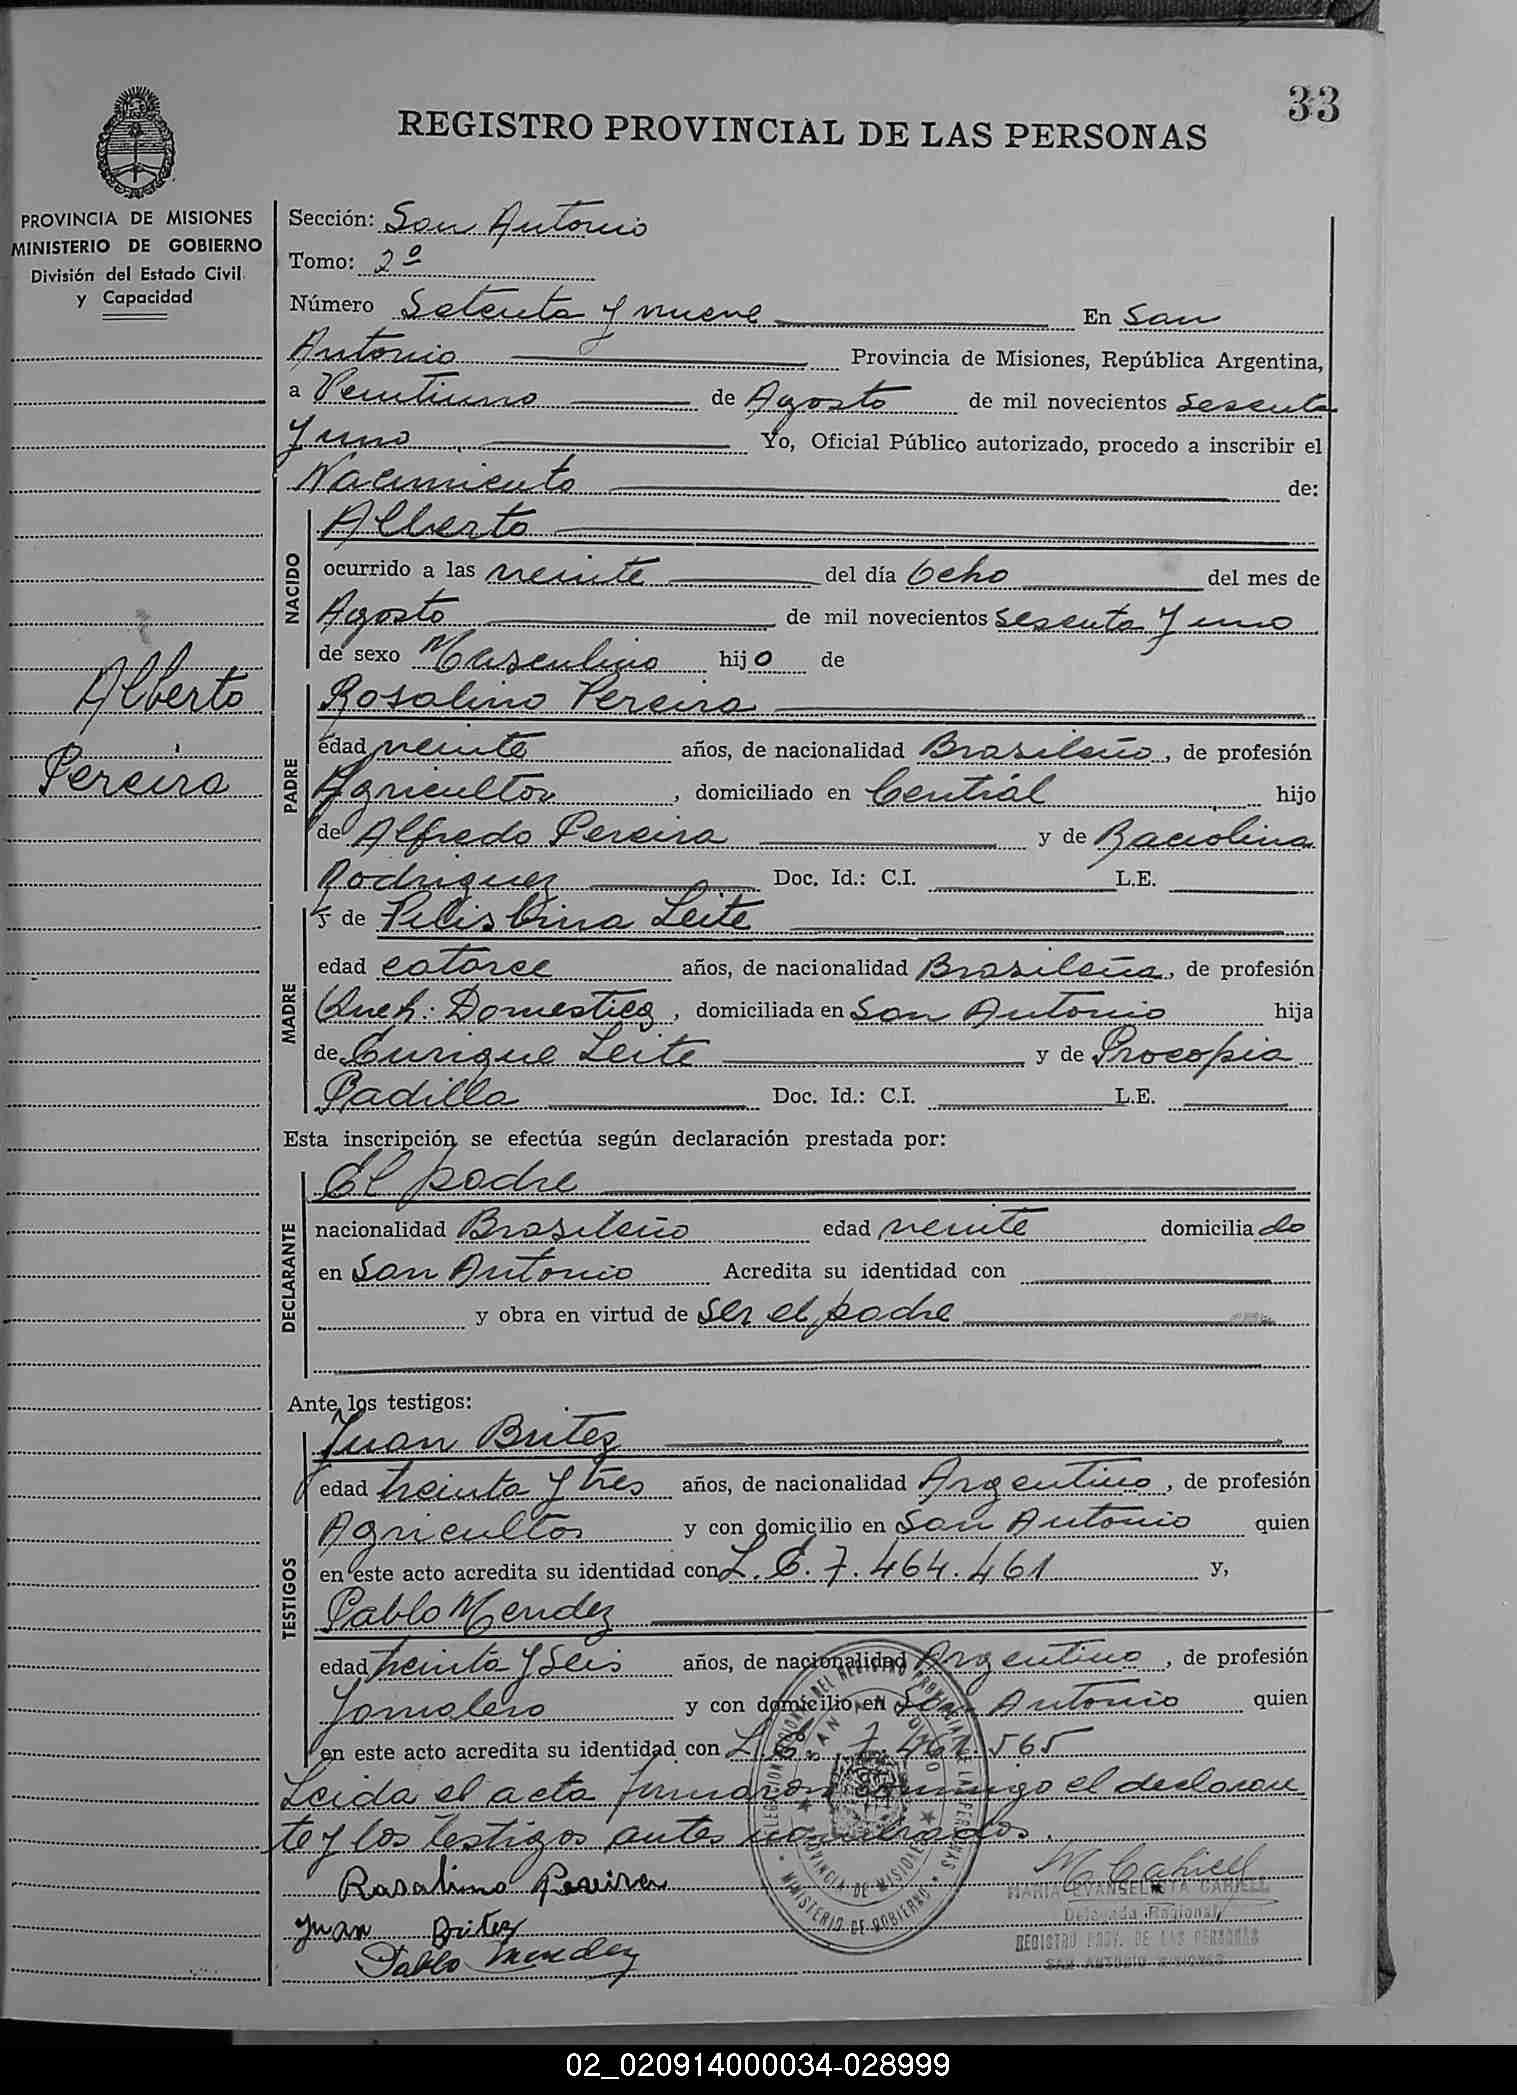 33
REGISTRO PROVINCIAL DE LAS PERSONAS
PROVINCIA DE MISIONES
MINISTERIO DE GOBIERNO
División del Estado Civil
y Capacidad
Alberto
Pereira
Sección: San Antonio
Tomo: 2º
Número Setenta y nueve En San
Antonio Provincia de Misiones, República Argentina,
a Veintiuno de Agosto de mil novecientos sesenta
y uno Yo, Oficial Público autorizado, procedo a inscribir el
Nacimiento de:
NACIDO
Alberto
ocurrido a las veinte del día Ocho del mes de
Agosto de mil novecientos sesenta y uno
de sexo Masculino hijo de
PADRE
Rosalino Pereira
edad veinte años, de nacionalidad Brasileño, de profesión
Agricultor, domiciliado en Centrál hijo
de Alfredo Pereira y de
Rodriguez Doc. Id.: C.I. L.E.
MADRE
y de Leite
edad catorce años, de nacionalidad Brasileña, de profesión
Queh. Domestica, domiciliada en San Antonio hija
de Enrique Leite y de Procopia
Padilla Doc. Id.: C.I. L.E.
Esta inscripción se efectúa según declaración prestada por:
DECLARANTE
El padre
nacionalidad Brasileño edad veinte domiciliado
en San Antonio Acredita su identidad con
y obra en virtud de ser el padre
Ante los testigos:
TESTIGOS
Juan Britez
edad treinta y tres años, de nacionalidad Argentino, de profesión
Agricultor y con domicilio en San Antonio quien
en este acto acredita su identidad con L.E. 7.464.461 y,
Pablo Mendez
edad treinta y seis años, de nacionalidad Argentino, de profesión
Jornalero y con domicilio en San Antonio quien
en este acto acredita su identidad con L.E. 7. 565
Leida el acta firmaron conmigo el declaran
te y los testigos antes nombrados.
Rosalino Pereira
Juan Britez
Pablo Mendez
M C Cahiell
MARIA EVANGELISTA
Delegada Regional
REGISTRO PROV. DE LAS PERSONAS
SAN ANTONIO MISIONES
DELEGACION REGIONAL DEL REGISTRO PROVINCIAL DE LAS PERSONAS
SAN ANTONIO
PROVINCIA DE MISIONES
MINISTERIO DE GOBIERNO
02_020914000034-028999